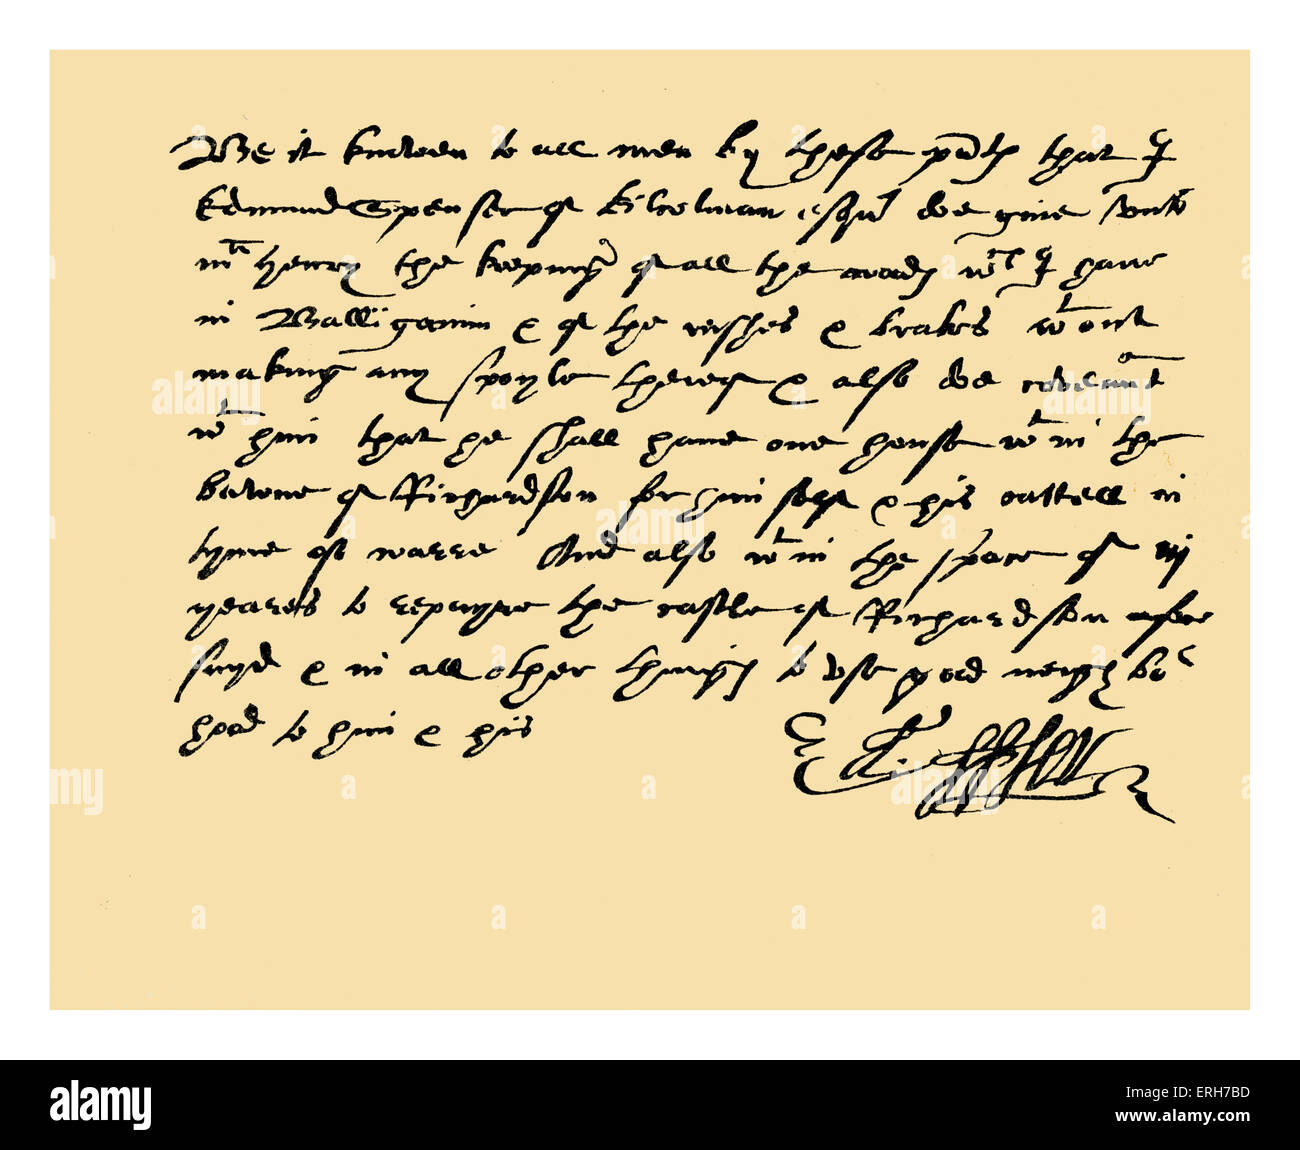 Be it knowen to all men by these pñts that I
Edmund Spenser of Kilcolman esqr doe give unto
mr Henry the keeping of all the woods wch I have
in Balliganim & of the rushes & brakes wthout
making any spoyle thereof & also doe covenãt
wth him that he shall have one house wthin the
bawne of Richardston for him self & his cattell in
tyme of warre And also wthin the space of iij
yeares to repayre the castle of Richardston afore
sayd & in all other things to use good neighbor
hood to him & his
Ed. Spser
alamy
alamy
alamy
Image ID: ERH7BD
www.alamy.com